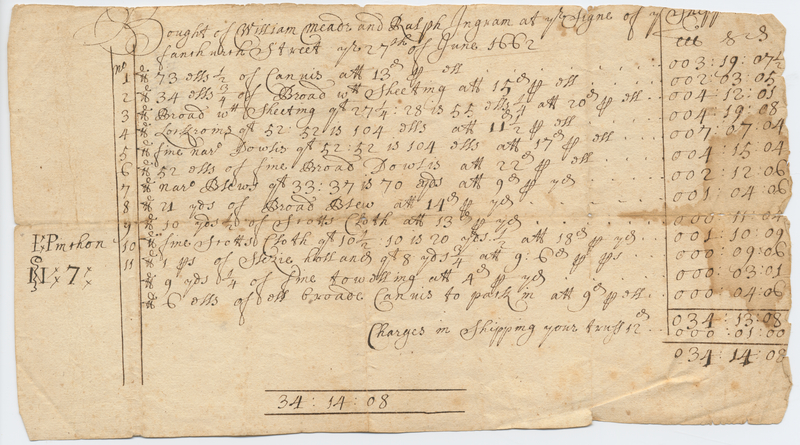 Bought of William Meade and Ralph Ingram at ye Signe of ye Shipp
fanchurch Street ye 27th of June 1662
no
li s d
1 73 ells ½ of Canvis att 13d pp ell 003:19:07½
2 34 ells ¾ of Broad wtt Sheeting att 15d pp ell 002:03:05
3 Broad wtt Sheeting qt 27¼:28 is 55 ells ¼ att 20d pp ell 004:12:01
4 Lockroms qt 52:52 is 104 ells att 11½ pp ell 004:19:08
5 fine narr Dowlis qt 52:52 is 104 ells att 17d pp ell 007:07:04
6 52 ells of fine Broad Dowlis att 22d pp ell 004:15:04
7 narr Blew qt 33:37 is 70 yds att 9d pp yd 002:12:06
8 21 yds of Broad Blew att 14d pp yd 001:04:06
9 10 yds ½ of Scotts Cloth att 13d pp yd 000:11:04
10 fine Scotts Cloth qt 10½:10 is 20 yds ½ att 18d pp yd 001:10:09
11 1 ps of Slezie holland qt 8 yds ¾ att 9:6d pp ps 000:09:06
9 yds ¼ of fine towelling att 4d pp yd 000:03:01
6 ells of ell broade Canvis to pack in att 9d pp ell 000:04:06
034:13:08
Charges in Shipping your truss 12d 000:01:00
034:14:08
7
34:14:08